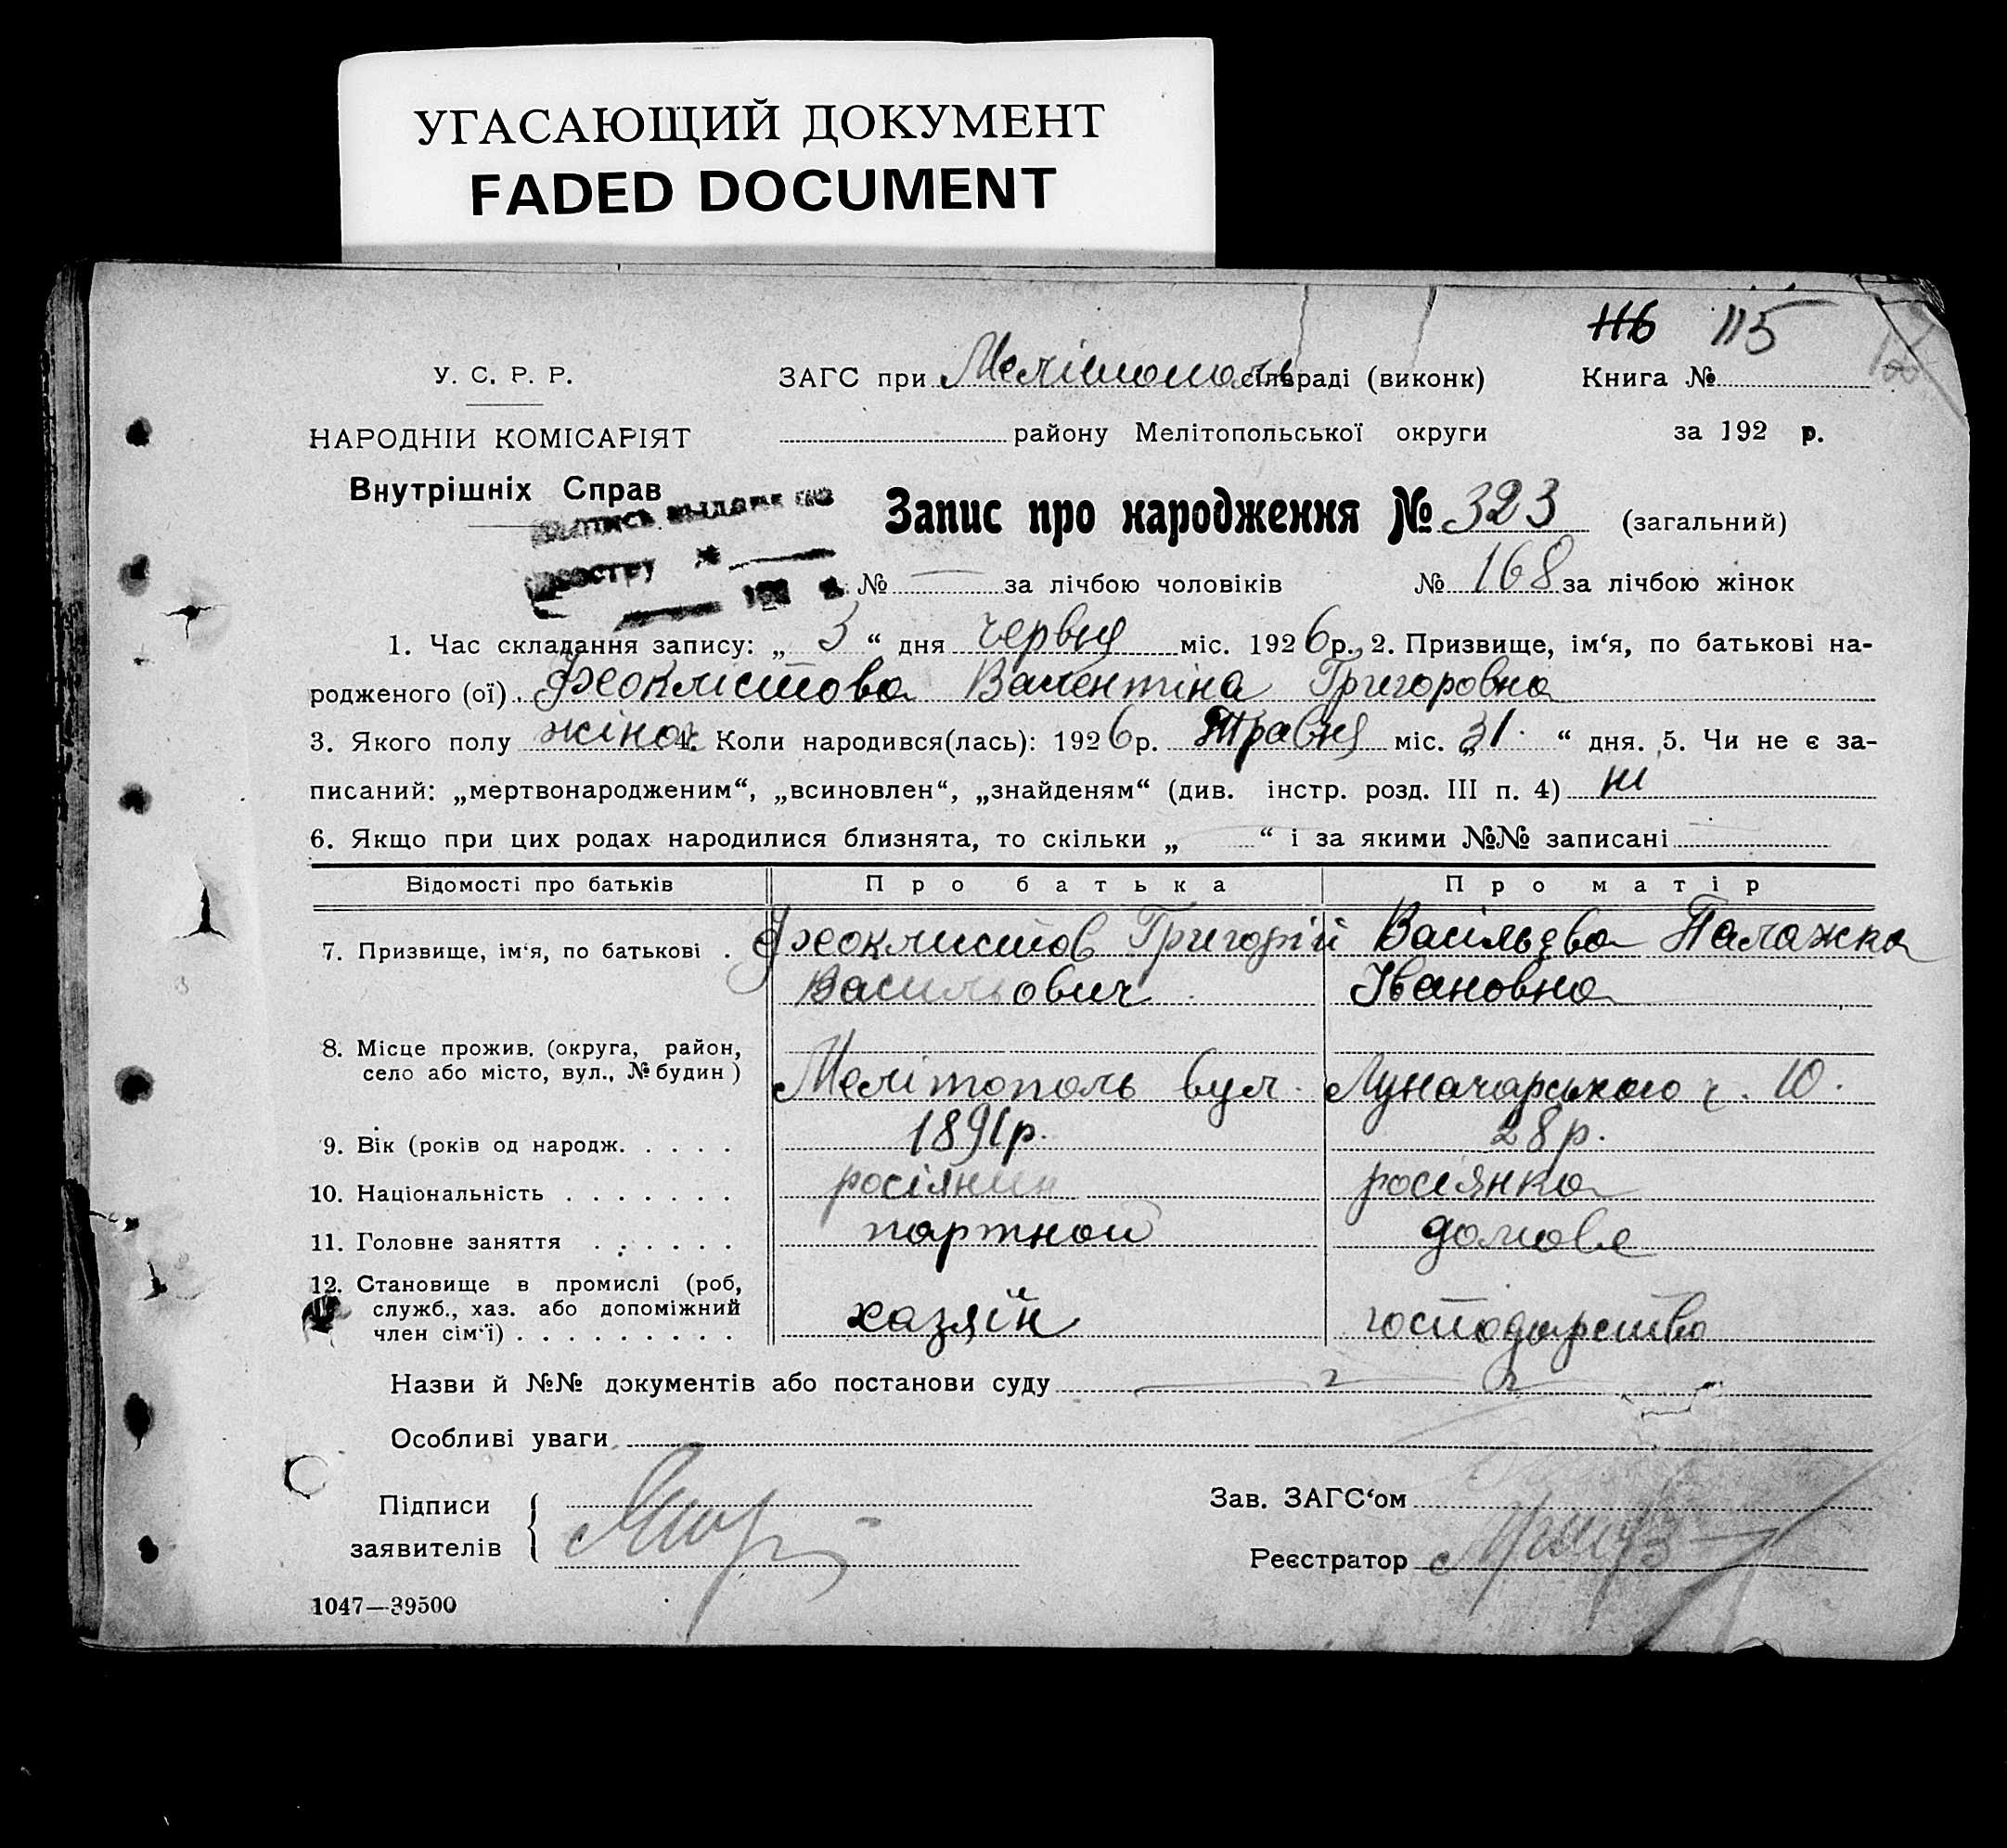 УГАСАЮЩИЙ ДОКУМЕНТ
FADED DOCUMENT
116 115
У. С. Р. Р.
ЗАГС при Мелітополь сільраді (виконк) Книга №
НАРОДНІИ КОМІСАРІЯТ
району Мелітопольської округи за 192 р.
Внутрішніх Справ
Запис про народження № 323 (загальний)
№ — за лічбою чоловіків № 168 за лічбою жінок
1. Час складання запису: „ 3 “ дня червня міс. 1926 р. 2. Призвище, ім‘я, по батькові на-
родженого (ої) Феоклістова Валентіна Григоровна
3. Якого полу жіноч 4. Коли народився(лась): 1926 р. Травня міс. „ 31 “ дня. 5. Чи не є за-
писаний: „мертвонародженим“, „всиновлен“, „знайденям“ (див. інстр. розд. III п. 4) ні
6. Якщо при цих родах народилися близнята, то скільки „ “ і за якими №№ записані
Відомості про батьків Про батька Про матір
7. Призвище, ім‘я, по батькові . Феоклистов Григорій Васільєва Палажка
Васильович Івановна
8. Місце прожив. (округа, район,
село або місто, вул., № будин) Мелітополь вул. Луначарського ч. 10.
9. Вік (років од народж. . . . . 1891 р. 28 р.
10. Національність . . . . . . . росіянин росіянка
11. Головне заняття . . . . . . портной домове
12. Становище в промислі (роб,
служб., хаз. або допоміжний
член сім‘ї) . . . . . . . . . хазяїн господарство
Назви й №№ документів або постанови суду
Особливі уваги
Підписи
заявителів
Зав. ЗАГС‘ом
Реєстратор
1047—39500